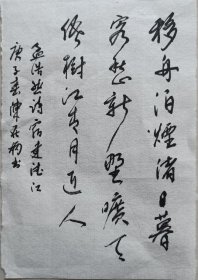 移舟泊煙渚日暮
客愁新野曠天
低樹江清月近人
孟浩然诗宿建德江
庚子春陳书